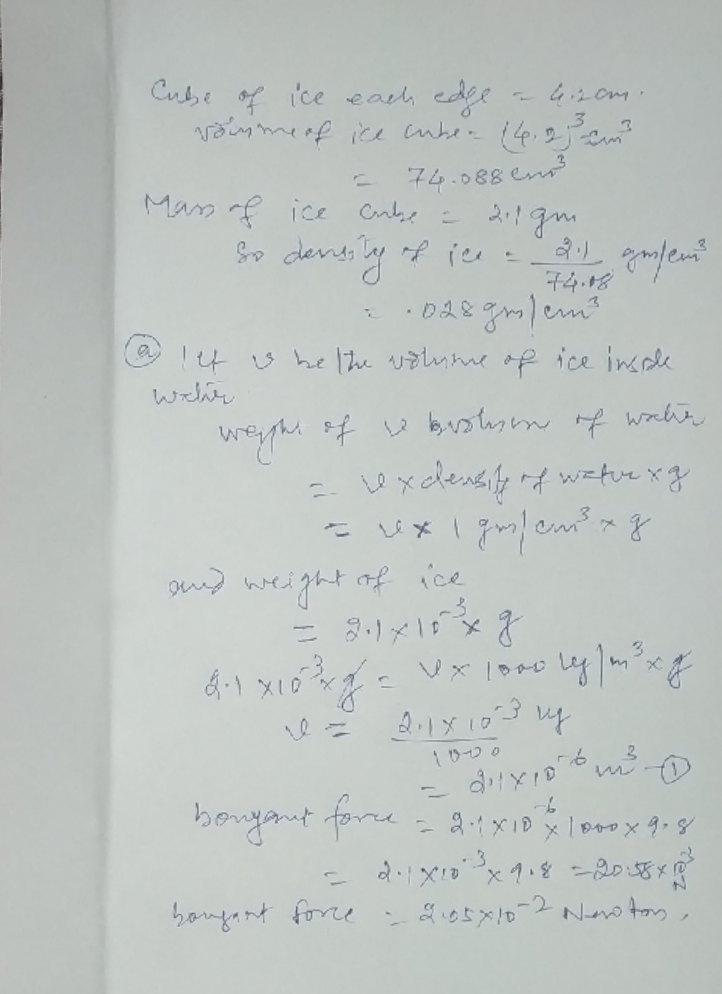 Cube of ice each edge = 4.2 cm.
volume of ice cube = (4.2)³ cm³
= 74.088 cm³
Mass of ice cube = 2.1 gm
So density of ice = 2.1/74.08 gm/cm³
= .028 gm/cm³
(a) let v be the volume of ice inside
water
weight of v volume of water
= v x density of water x g
= v x 1 gm/cm³ x g
and weight of ice
= 2.1 x 10⁻³ x g
2.1 x 10⁻³ x g = v x 1000 kg/m³ x g
v = 2.1 x 10⁻³ kg / 1000
= 2.1 x 10⁻⁶ m³ - (1)
bouyant force = 2.1 x 10⁻⁶ x 1000 x 9.8
= 2.1 x 10⁻³ x 9.8 = 20.58 x 10⁻³ N
bouyant force = 2.05 x 10⁻² Newton,